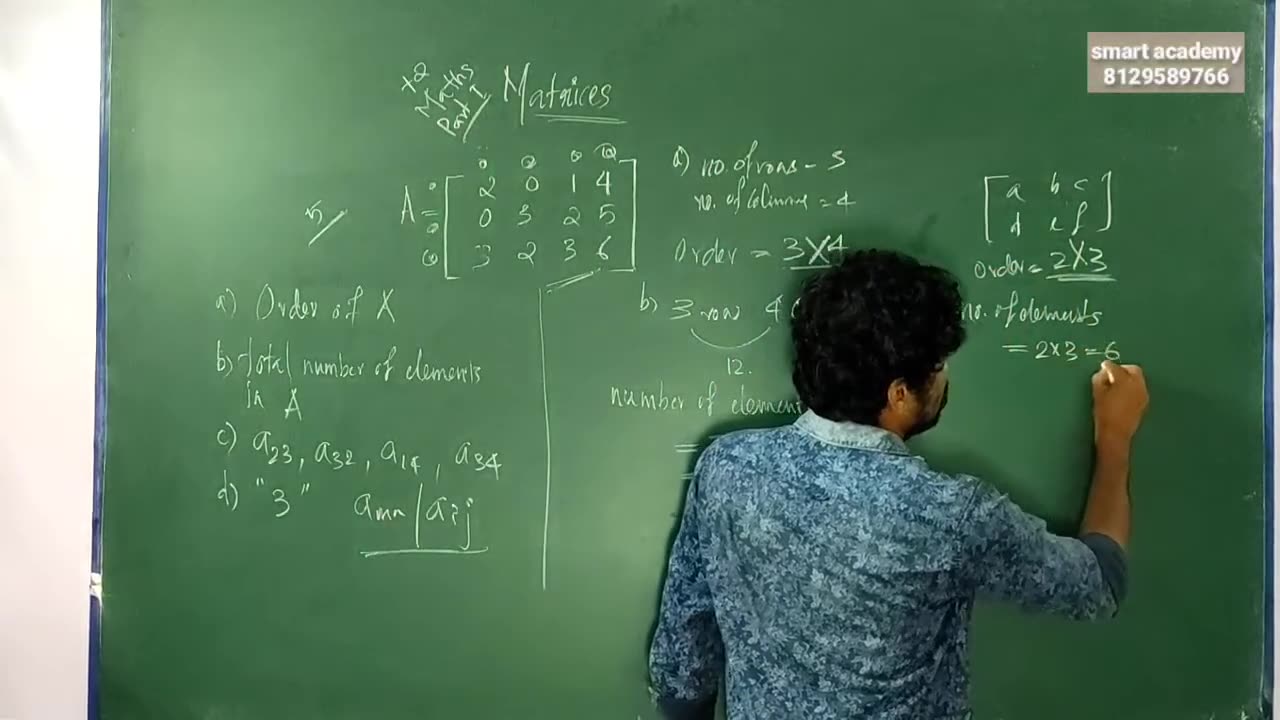 smart academy
8129589766
+2
Maths
Part I
Matrices
A = [ 2 0 1 4
0 3 2 5
3 2 3 6 ]
a) Order of X
b) total number of elements
in A
c) a23, a32, a14, a34
d) "3" amn / aij
a) no. of rows - 3
no. of columns = 4
Order = 3X4
b) 3 rows 4
12.
number of element
=
=
[ a b c
d e f ]
Order = 2X3
no. of elements
= 2x3 = 6